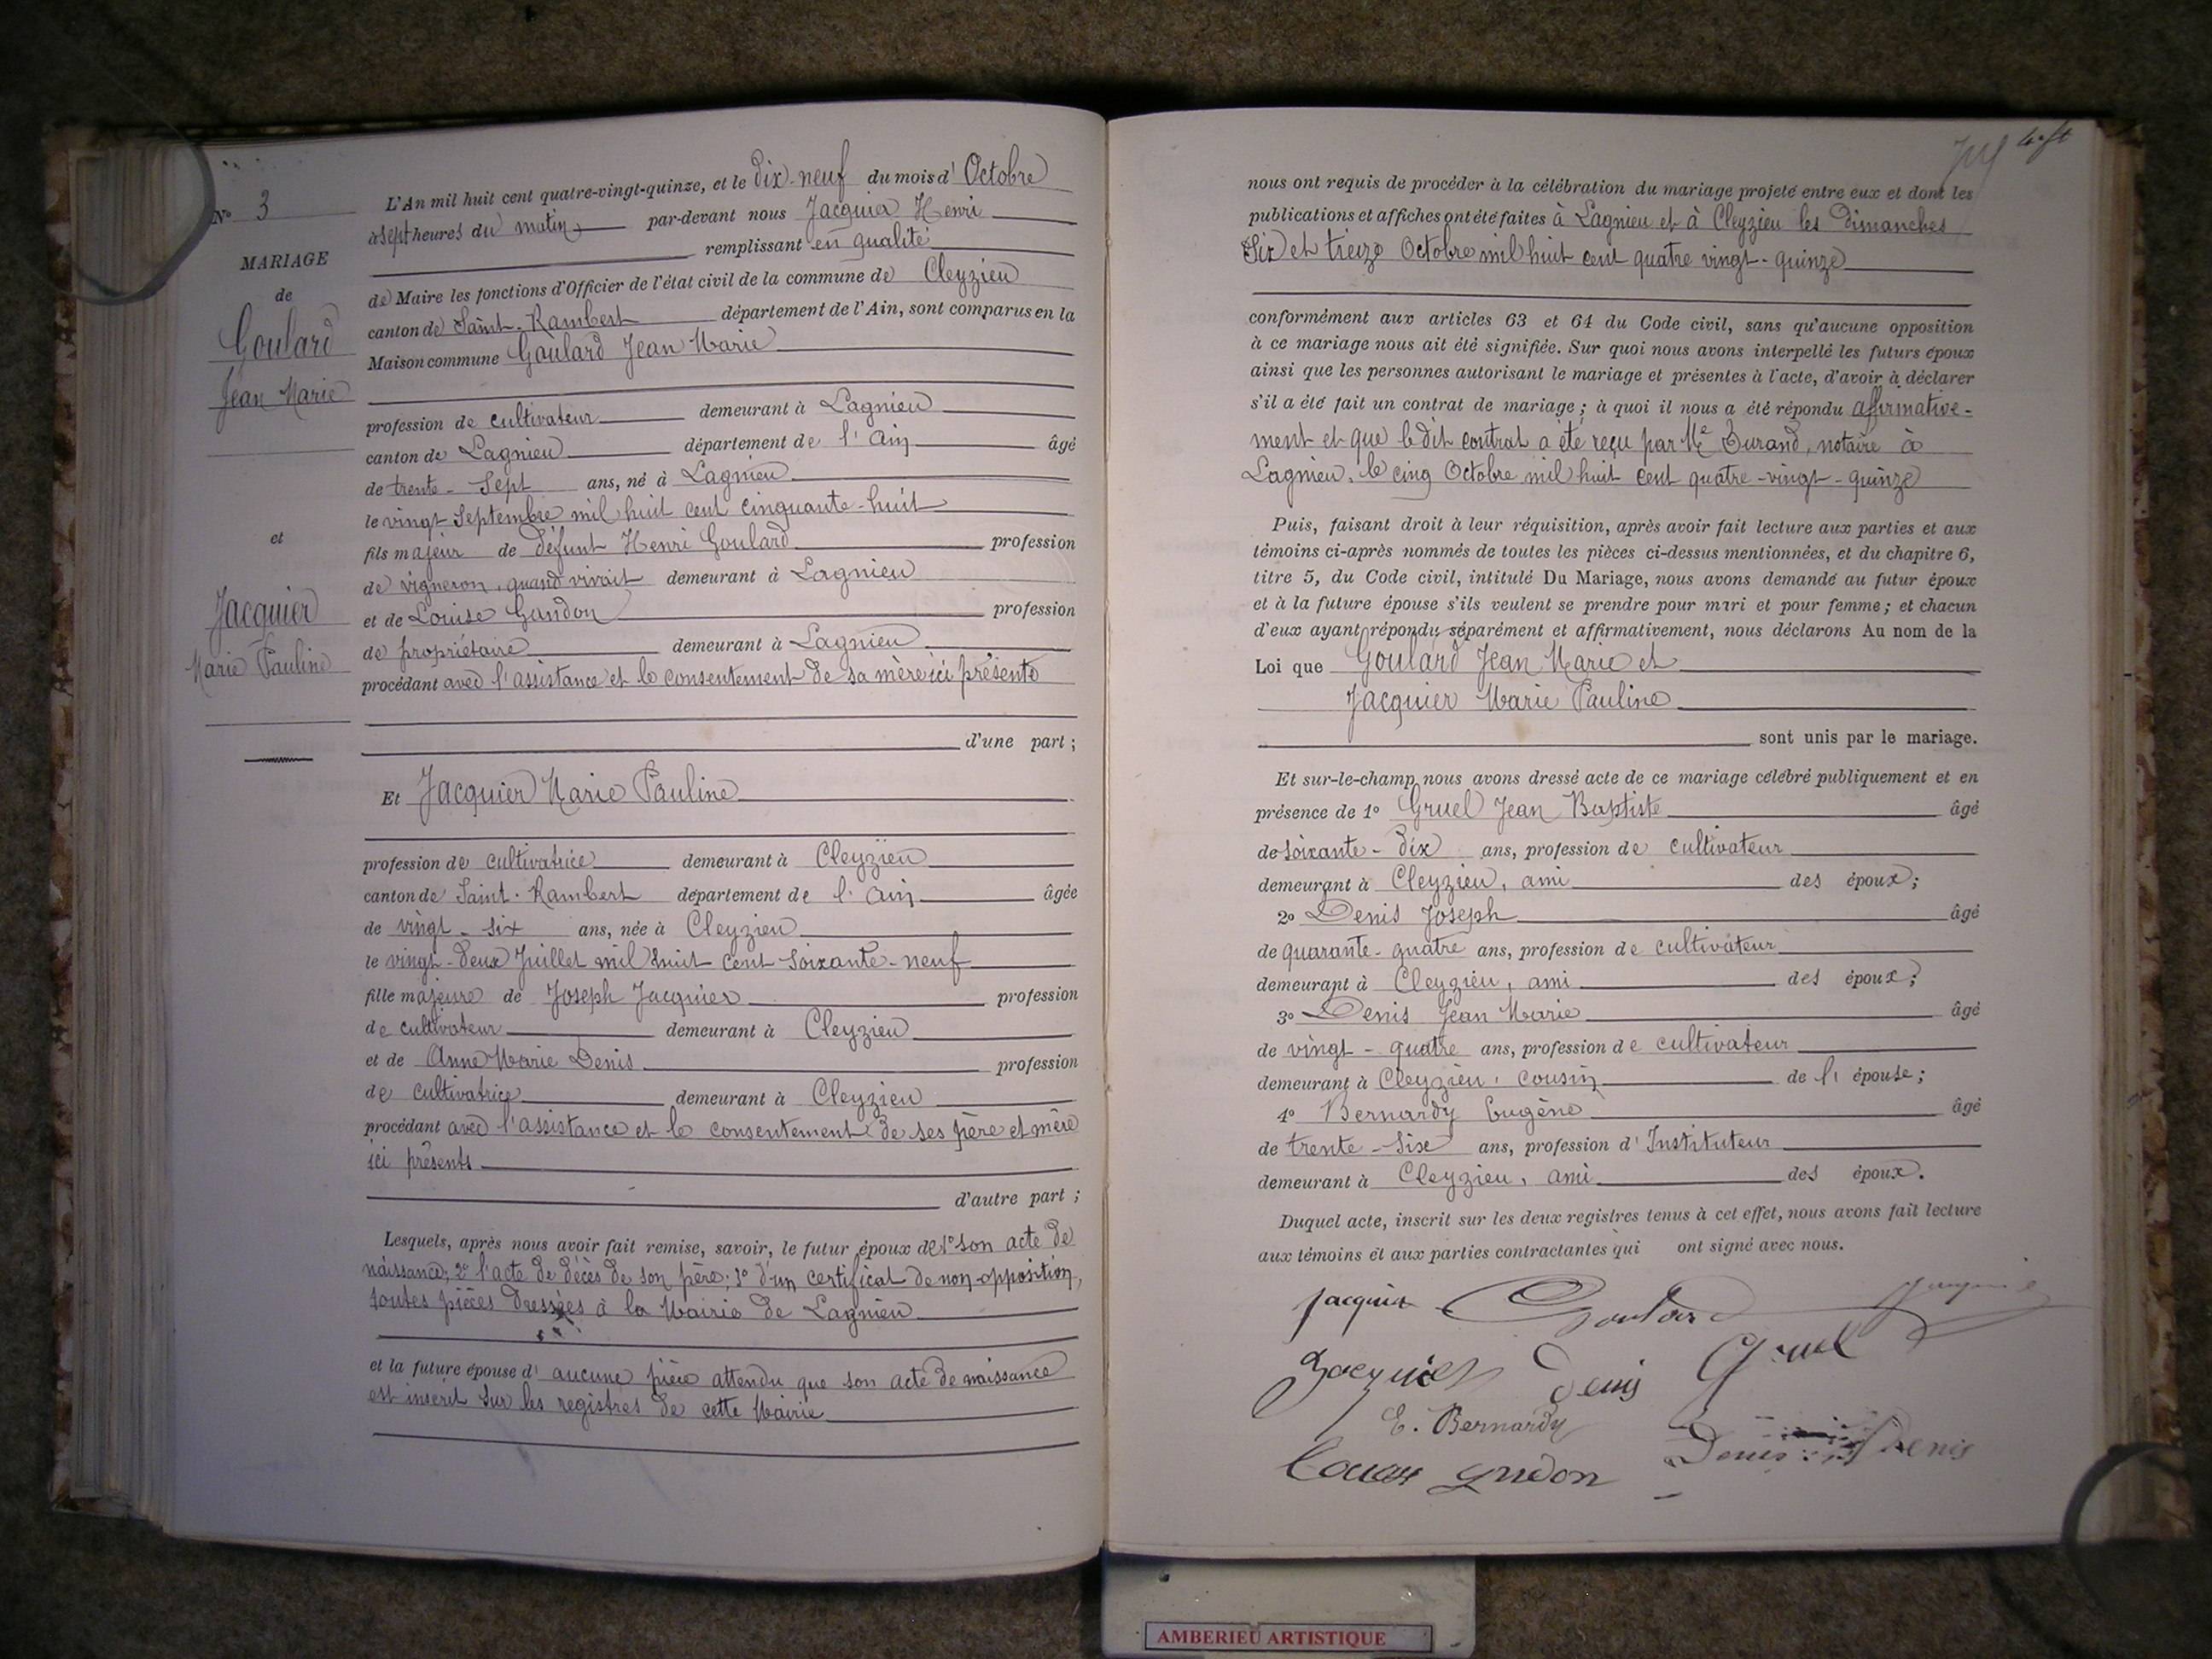 N° 3
MARIAGE
de
Goulard
Jean Marie
et
Jacquier
Marie Pauline
L'An mil huit cent quatre-vingt-quinze, et le dix-neuf du mois d'Octobre
à sept heures du matin par-devant nous Jacquier Henri
remplissant en qualité
de Maire les fonctions d'Officier de l'état civil de la commune de Cleyzieu
canton de Saint-Rambert département de l'Ain, sont comparus en la
Maison commune Goulard Jean Marie
profession de cultivateur demeurant à Lagnieu
canton de Lagnieu département de l'Ain âgé
de trente-sept ans, né à Lagnieu
le vingt Septembre mil huit cent cinquante-huit
fils majeur de défunt Henri Goulard profession
de vigneron, quand vivait demeurant à Lagnieu
et de Louise Gandon profession
de propriétaire demeurant à Lagnieu
procédant avec l'assistance et le consentement de sa mère ici présente
d'une part ;
Et Jacquier Marie Pauline
profession de cultivatrice demeurant à Cleyzieu
canton de Saint-Rambert département de l'Ain âgée
de vingt-six ans, née à Cleyzieu
le vingt-deux Juillet mil huit cent soixante-neuf
fille majeure de Joseph Jacquier profession
de cultivateur demeurant à Cleyzieu
et de Anne Marie Denis profession
de cultivatrice demeurant à Cleyzieu
procédant avec l'assistance et le consentement de ses père et mère
ici présents
d'autre part ;
Lesquels, après nous avoir fait remise, savoir, le futur époux de 1° son acte de
naissance; 2° l'acte de décès de son père; 3° d'un certificat de non-opposition,
toutes pièces dressées à la Mairie de Lagnieu
et la future épouse d'aucune pièce attendu que son acte de naissance
est inscrit sur les registres de cette Mairie
nous ont requis de procéder à la célébration du mariage projeté entre eux et dont les
publications et affiches ont été faites à Lagnieu et à Cleyzieu les Dimanches
Six et treize Octobre mil huit cent quatre vingt-quinze
conformément aux articles 63 et 64 du Code civil, sans qu'aucune opposition
à ce mariage nous ait été signifiée. Sur quoi nous avons interpellé les futurs époux
ainsi que les personnes autorisant le mariage et présentes à l'acte, d'avoir à déclarer
s'il a été fait un contrat de mariage ; à quoi il nous a été répondu affirmative-
ment et que ledit contrat a été reçu par Me Durand, notaire à
Lagnieu, le cinq Octobre mil huit cent quatre-vingt-quinze
Puis, faisant droit à leur réquisition, après avoir fait lecture aux parties et aux
témoins ci-après nommés de toutes les pièces ci-dessus mentionnées, et du chapitre 6,
titre 5, du Code civil, intitulé Du Mariage, nous avons demandé au futur époux
et à la future épouse s'ils veulent se prendre pour mari et pour femme ; et chacun
d'eux ayant répondu séparément et affirmativement, nous déclarons Au nom de la
Loi que Goulard Jean Marie et
Jacquier Marie Pauline
sont unis par le mariage.
Et sur-le-champ nous avons dressé acte de ce mariage célébré publiquement et en
présence de 1° Gruel Jean Baptiste âgé
de soixante-dix ans, profession de cultivateur
demeurant à Cleyzieu, ami des époux ;
2° Denis Joseph âgé
de quarante-quatre ans, profession de cultivateur
demeurant à Cleyzieu, ami des époux ;
3° Denis Jean Marie âgé
de vingt-quatre ans, profession de cultivateur
demeurant à Cleyzieu, cousin de l'épouse ;
4° Bernardy Eugène âgé
de trente-six ans, profession d'Instituteur
demeurant à Cleyzieu, ami des époux.
Duquel acte, inscrit sur les deux registres tenus à cet effet, nous avons fait lecture
aux témoins et aux parties contractantes qui ont signé avec nous.
Jacquier Goulard
Jacquier Denis Gruel
E. Bernardy
Denis Denis
AMBERIEU ARTISTIQUE